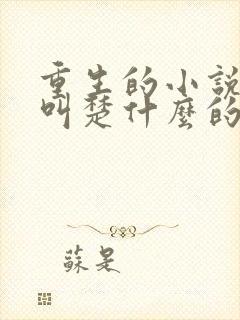 重生的小說
叫楚什麼的
蘇是